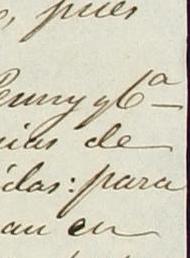 , pues
Penny y Cª
nias de
idas: para
an en